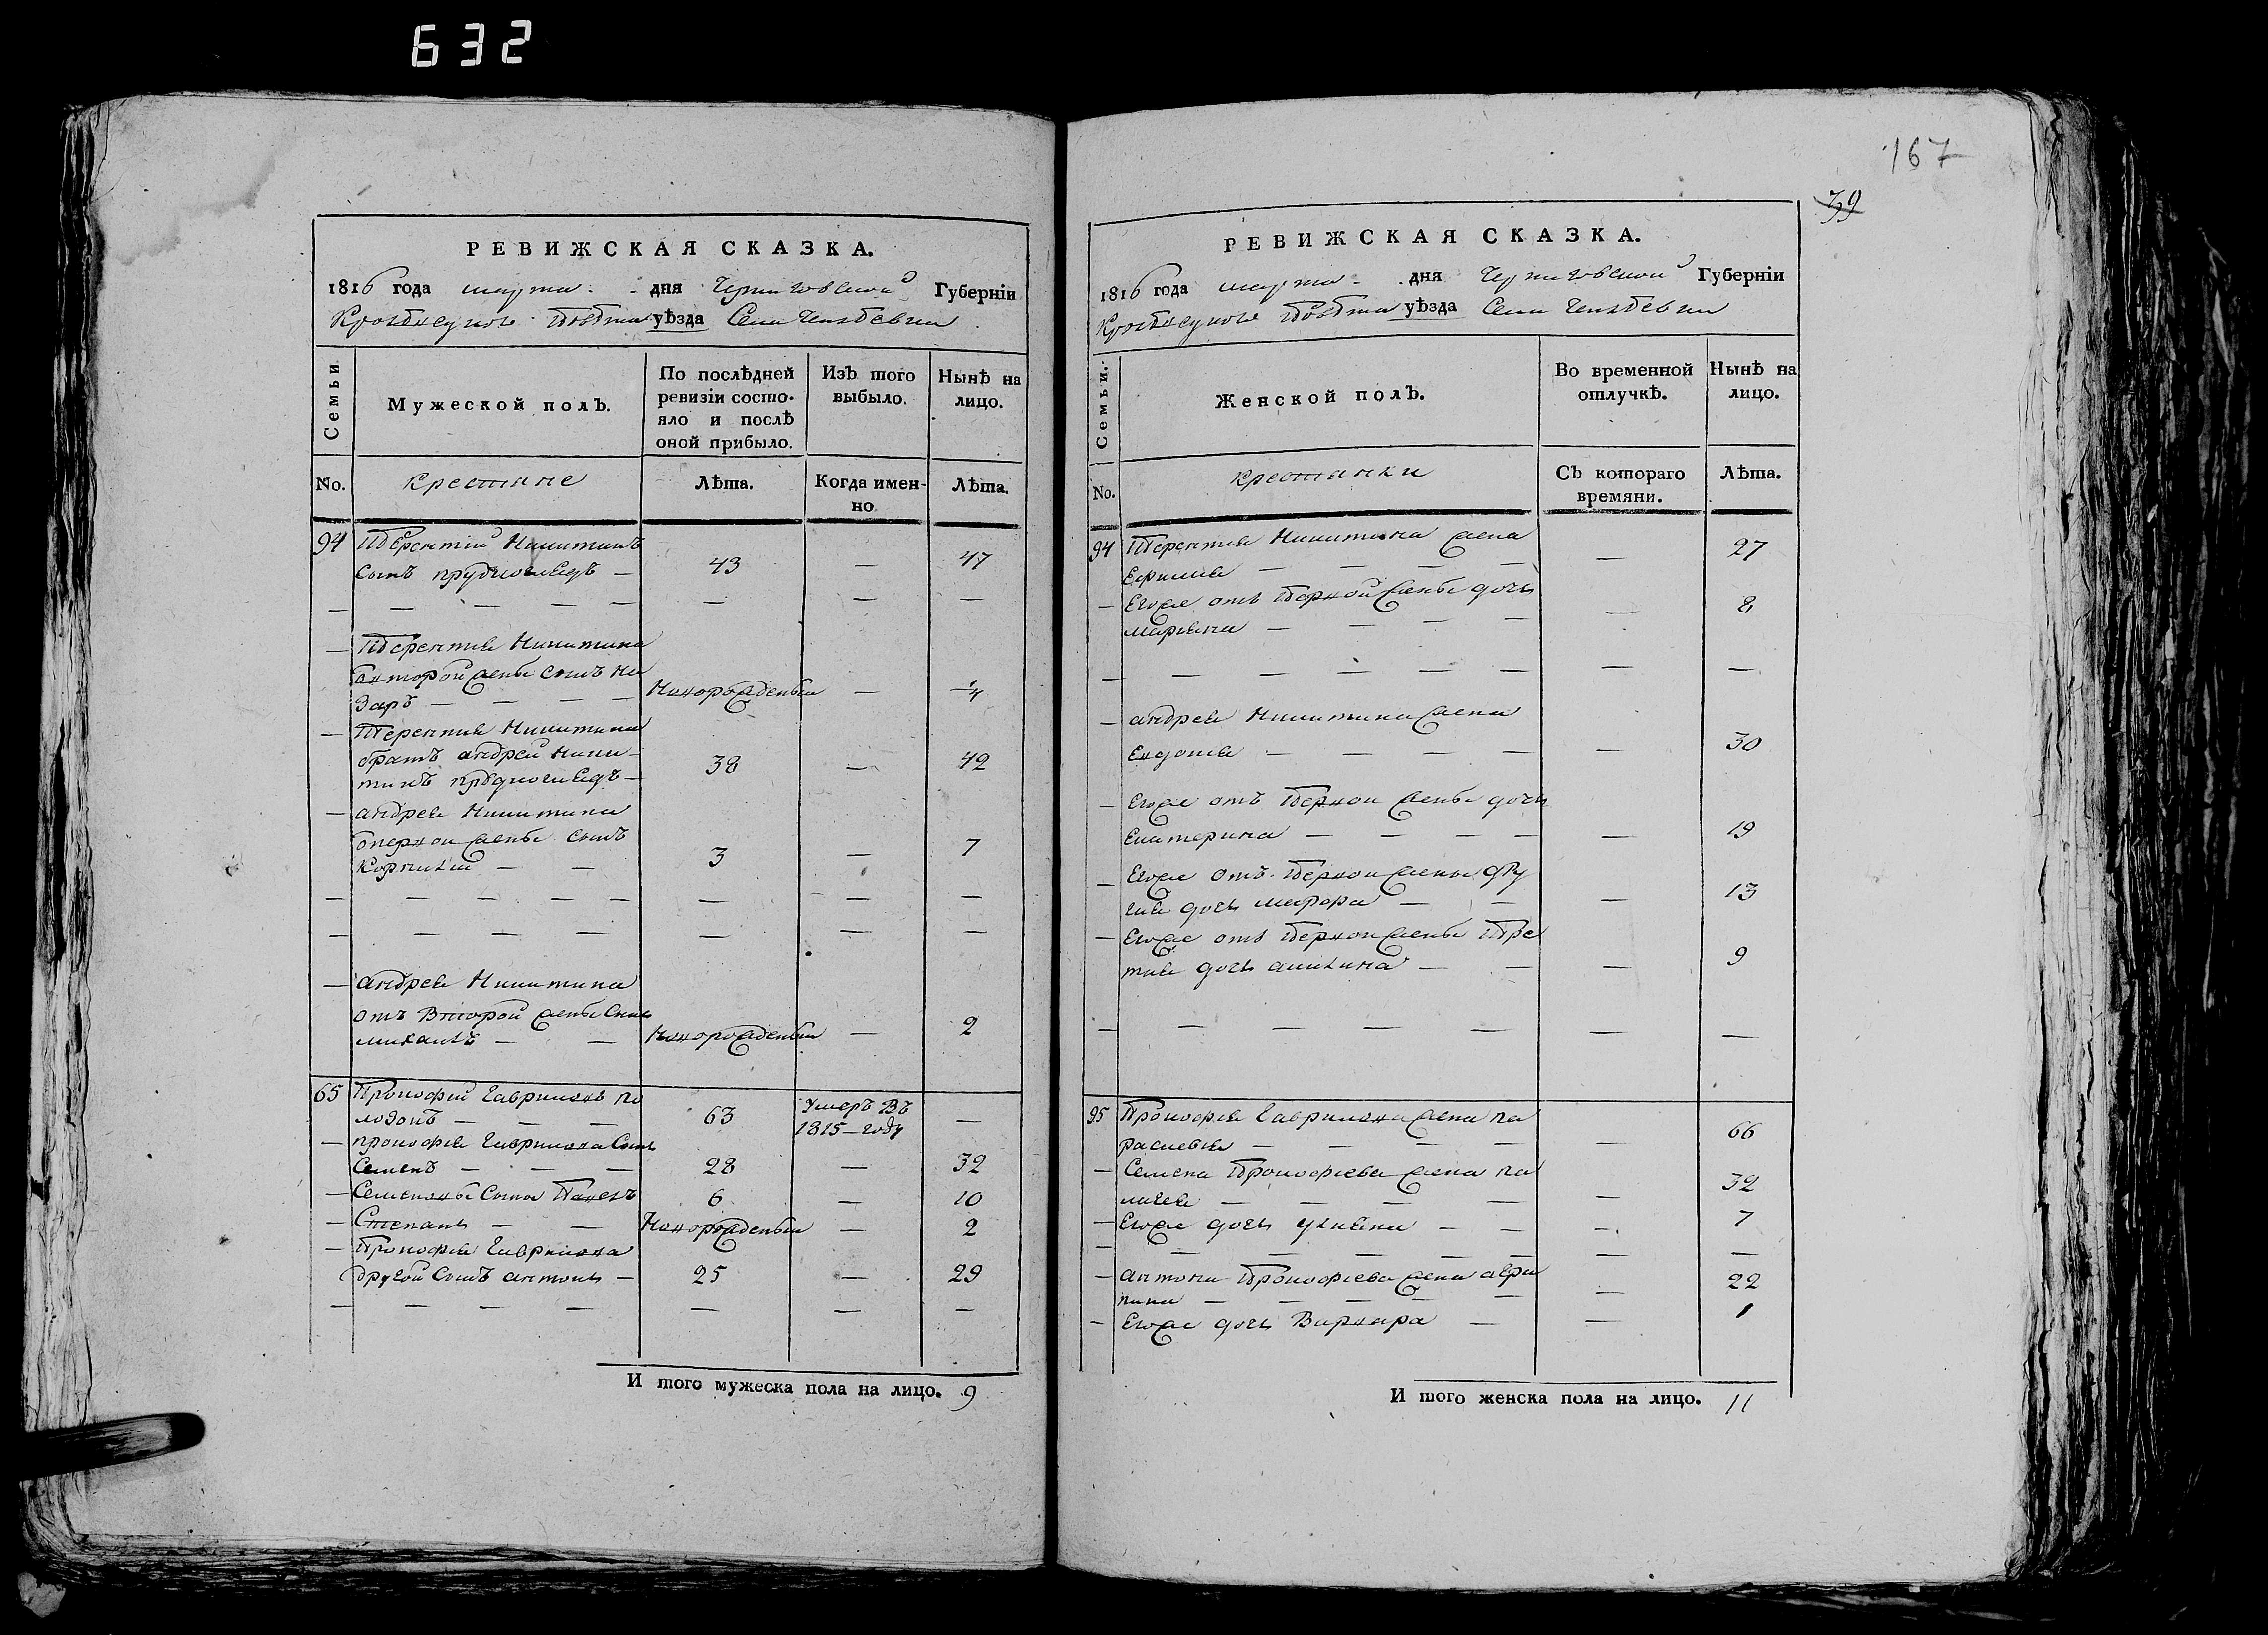 632
167
39
РЕВИЖСКАЯ СКАЗКА.
1816 года марта дня Черниговской Губерніи
Кролевецкого Повѣта уѣзда Села
Семьи
Мужеской полЪ.
По послѣдней ревизіи состояло и послѣ оной прибыло.
ИзЪ того выбыло.
НынѢ на лицо.
No.
Крестяне
Лѣта.
Когда именно
Лѣта.
94 Терентий Никитинъ
сынъ 43 — 47
— — — — — — — —
— Терентия Никитина
второй жены сынъ На
заръ — — — Новорожденъ — 1/4
— Терентия Никитина
братъ андрей Ники-
тинъ 38 — 42
— андрея Никитина
первой жены сынъ
Корнилий — — 3 — 7
— — — — — — — —
— — — — — — — —
— андрея Никитина
отъ второй жены сынъ
михаилъ — — Новорожденъ — 2
65 Прокофий Гавриловъ По
лозокъ — — 63 Умеръ Въ 1815 году —
— прокофия Гаврилова Сынъ
Семенъ — — — 28 — 32
— Семеновы Сына Павелъ 6 — 10
— Степанъ — — Новорожденъ — 2
— Прокофия Гаврилова
другой Сынъ антонъ — 25 — 29
— — — — — — —
И того мужеска пола на лицо. 9
РЕВИЖСКАЯ СКАЗКА.
1816 года марта дня Черниговской Губерніи
Кролевецкого Повѣта уѣзда Села
Семьи.
Женской полЪ.
Во временной отлучкѣ.
НынѢ на лицо.
No.
Крестянки
СЪ котораго времяни.
Лѣта.
94 Терентия Никитина жена
Ефимия — — — — — 27
— Егоже отъ первой жены дочь
марьяна — — — — — 8
— — — — — — — —
— андрея Никитина жена
Евдокия — — — — — 30
— Егоже отъ первой жены дочь
Екатерина — — — — — 19
— Егоже отъ первой жены дру
гая дочь марфа — — — 13
— Егоже отъ первой жены тре
тия дочь акилина — — — 9
— — — — — — — —
95 Прокофия Гаврилова жена па
раскевия — — — — — 66
— Семена Прокофиева жена пе
лагея — — — — — 32
— Егоже дочь улияна — — — 7
— — — — — — — —
— антона Прокофиева жена агри
пина — — — — — — 22
— Егоже дочь Варвара — — 1
И того женска пола на лицо. 11